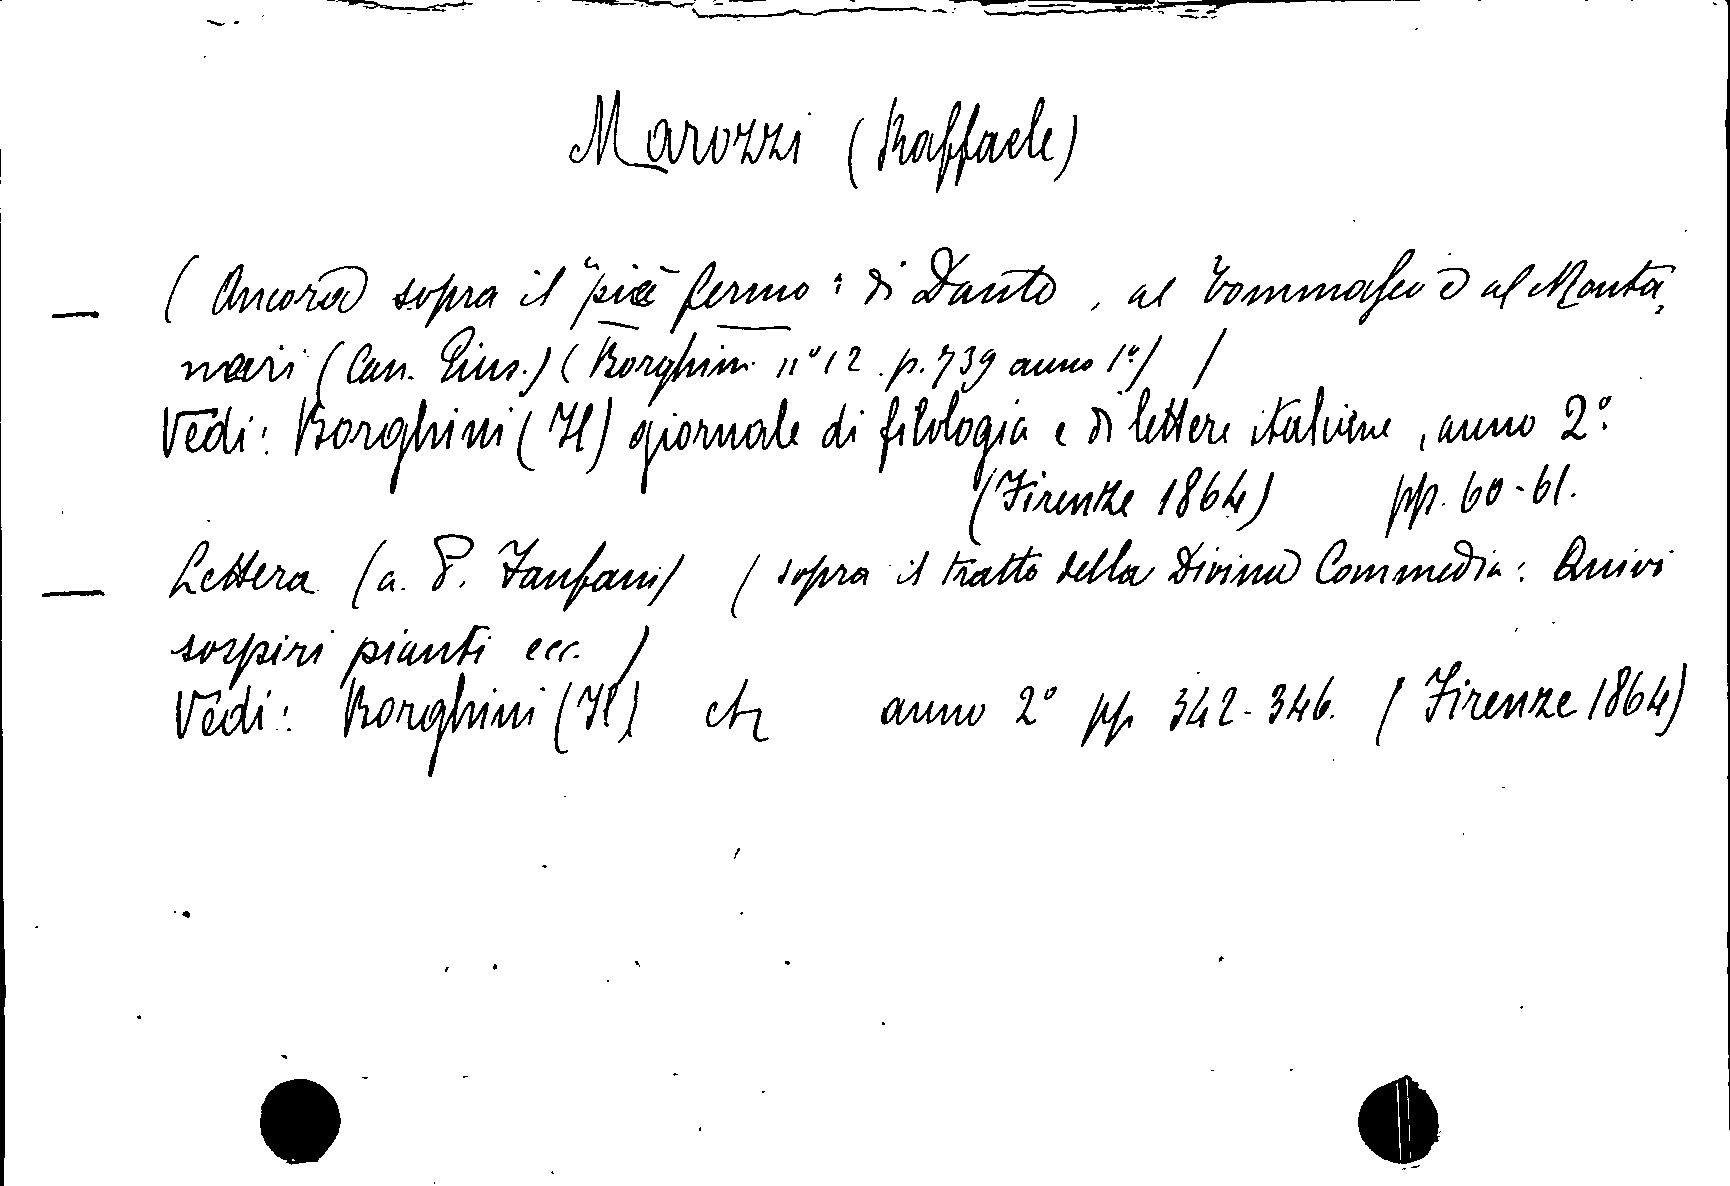 Marozzi (Raffaele)
— (Ancora sopra il "piè fermo" di Dante, al Tommaseo e al Monta,
nari (Can. Gius.) (Borghini n° 12 p. 739 anno 1°) )
Vedi: Borghini (Il) giornale di filologia e di lettere italiane, anno 2°.
(Firenze 1864) pp. 60-61.
— Lettera (a P. Fanfani) (sopra il tratto della Divina Commedia: Quivi
sospiri pianti ecc. )
Vedi: Borghini (Il) etc anno 2° pp 342-346. (Firenze 1864)